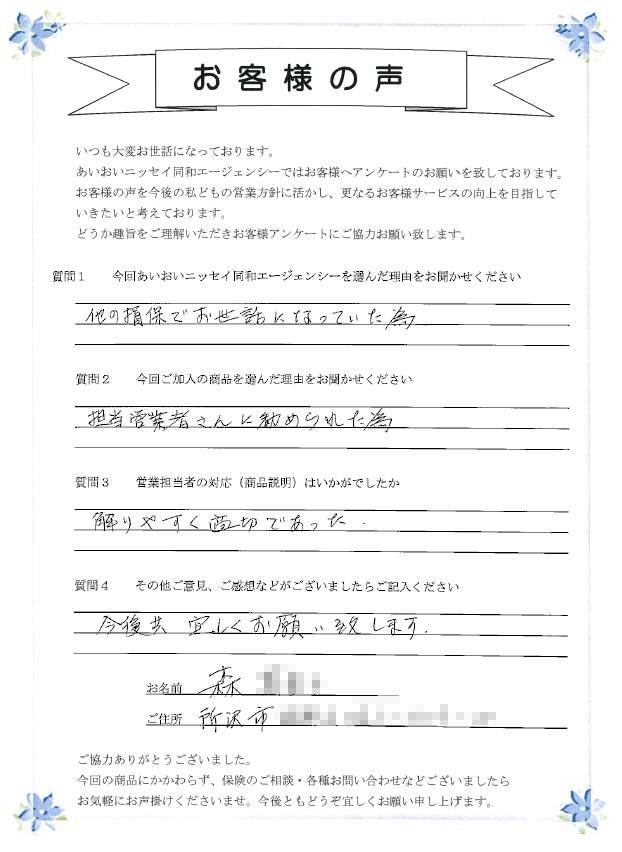 お客様の声
いつも大変お世話になっております。
あいおいニッセイ同和エージェンシーではお客様へアンケートのお願いを致しております。
お客様の声を今後の私どもの営業方針に活かし、更なるお客様サービスの向上を目指して
いきたいと考えております。
どうか趣旨をご理解いただきお客様アンケートにご協力お願い致します。
質問1 今回あいおいニッセイ同和エージェンシーを選んだ理由をお聞かせください
他の損保でお世話になっていた為
質問2 今回ご加入の商品を選んだ理由をお聞かせください
担当営業者さんに勧められた為
質問3 営業担当者の対応（商品説明）はいかがでしたか
解りやすく適切であった.
質問4 その他ご意見、ご感想などがございましたらご記入ください
今後共 宜しくお願い致します.
お名前 森
ご住所 所沢市
ご協力ありがとうございました。
今回の商品にかかわらず、保険のご相談・各種お問い合わせなどございましたら
お気軽にお声掛けくださいませ。今後ともどうぞ宜しくお願い申し上げます。